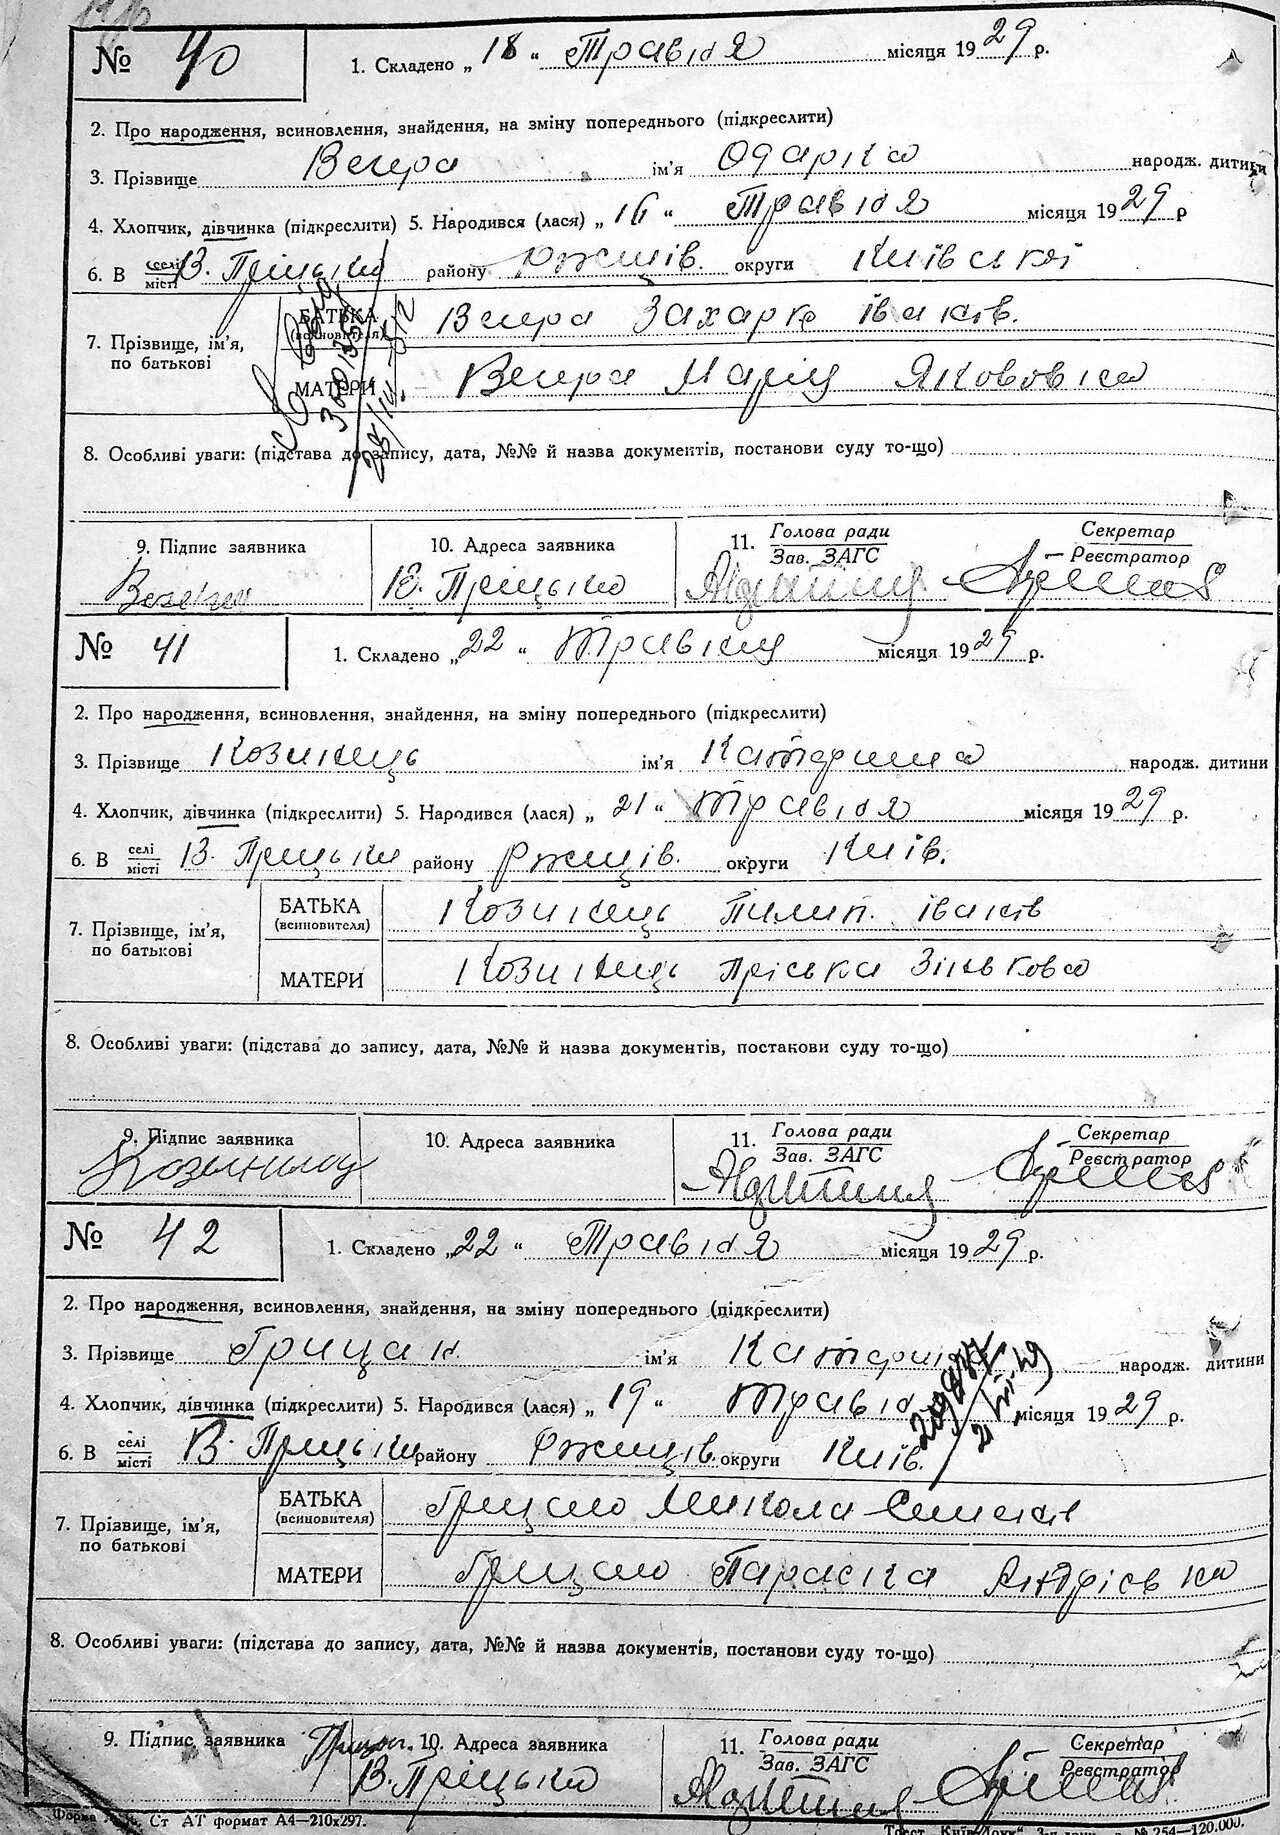 № 40 1. Складено „ 18 “ Травня місяця 1929 р.
2. Про народження, всиновлення, знайдення, на зміну попереднього (підкреслити)
3. Прізвище ім'я Одарка народж. дитини
4. Хлопчик, дівчинка (підкреслити) 5. Народився (лася) „ 16 “ Травня місяця 1929 р
6. В селі місті В. Пріцьки району Ржищів. округи Київської
7. Прізвище, ім'я, по батькові
БАТЬКА (всиновителя) Захарко Іванів.
МАТЕРИ Марія Яковівна
8. Особливі уваги: (підстава до запису, дата, №№ й назва документів, постанови суду то-що)
9. Підпис заявника 10. Адреса заявника 11. Голова ради Зав. ЗАГС Секретар Реєстратор
В. Пріцьки
№ 41 1. Складено „ 22 “ Травня місяця 1929 р.
2. Про народження, всиновлення, знайдення, на зміну попереднього (підкреслити)
3. Прізвище Козинець ім'я Катерина народж. дитини
4. Хлопчик, дівчинка (підкреслити) 5. Народився (лася) „ 21 “ Травня місяця 1929 р.
6. В селі місті В. Пріцьки району Ржищів. округи Київ.
7. Прізвище, ім'я, по батькові
БАТЬКА (всиновителя) Козинець Пилип. Іванів
МАТЕРИ Козинець Пріська Зіньковна
8. Особливі уваги: (підстава до запису, дата, №№ й назва документів, постанови суду то-що)
9. Підпис заявника 10. Адреса заявника 11. Голова ради Зав. ЗАГС Секретар Реєстратор
№ 42 1. Складено „ 22 “ Травня місяця 1929 р.
2. Про народження, всиновлення, знайдення, на зміну попереднього (підкреслити)
3. Прізвище ім'я Катерина народж. дитини
4. Хлопчик, дівчинка (підкреслити) 5. Народився (лася) „ 19 “ Травня місяця 1929 р.
6. В селі місті В. Пріцьки району Ржищів. округи Київ.
7. Прізвище, ім'я, по батькові
БАТЬКА (всиновителя) Микола Семенів
МАТЕРИ Параска Андрієвна
8. Особливі уваги: (підстава до запису, дата, №№ й назва документів, постанови суду то-що)
9. Підпис заявника 10. Адреса заявника 11. Голова ради Зав. ЗАГС Секретар Реєстратор
В. Пріцьки
Форма Ст АТ формат А4—210x297. № 254—120.000.